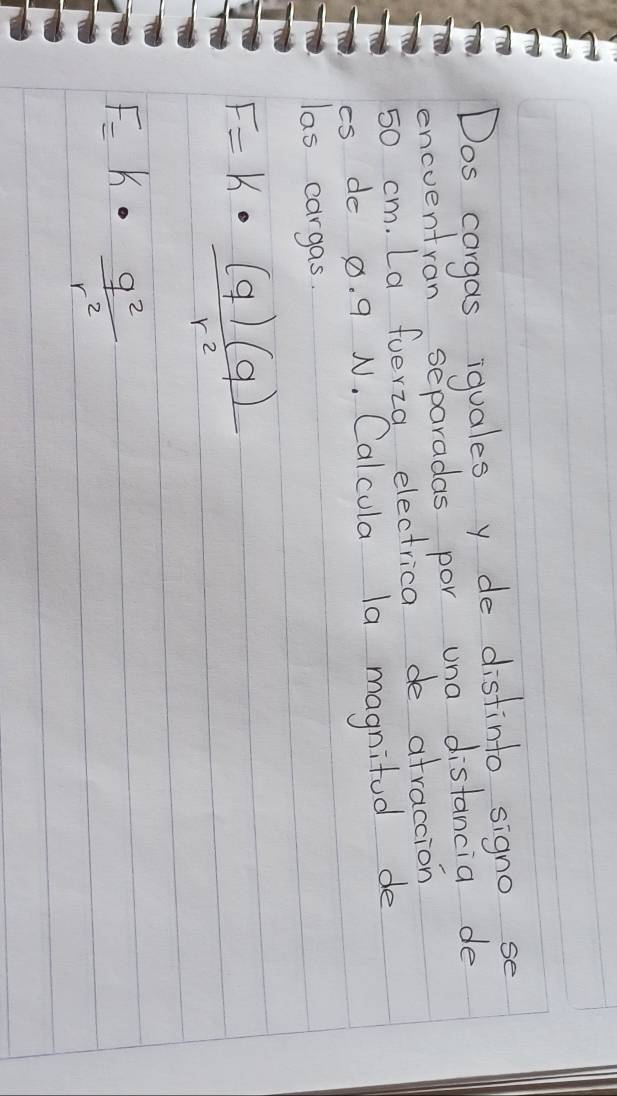 Dos cargas iguales y de distinto signo se
encuentran separadas por una distancia de
50 cm. La fuerza electrica de atracción
es de 0.9 N. Calcula la magnitud de
las cargas.
F = K • (q)(q) / r²
F = K • q² / r²